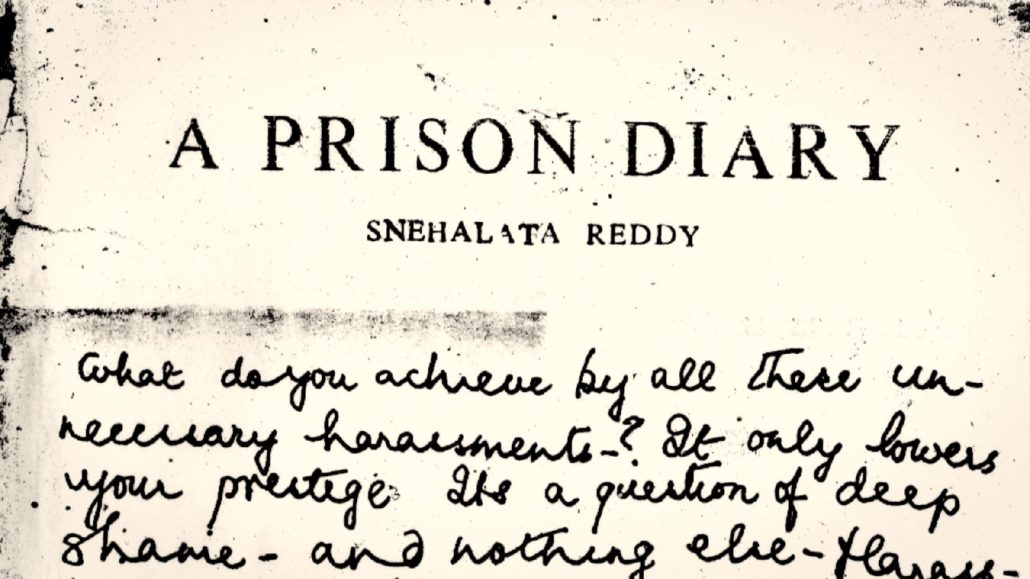 A PRISON DIARY
SNEHALATA REDDY
What do you achieve by all these un-
necessary harassments-? It only lowers
your prestige Its a question of deep
shame - and nothing else - Harass-